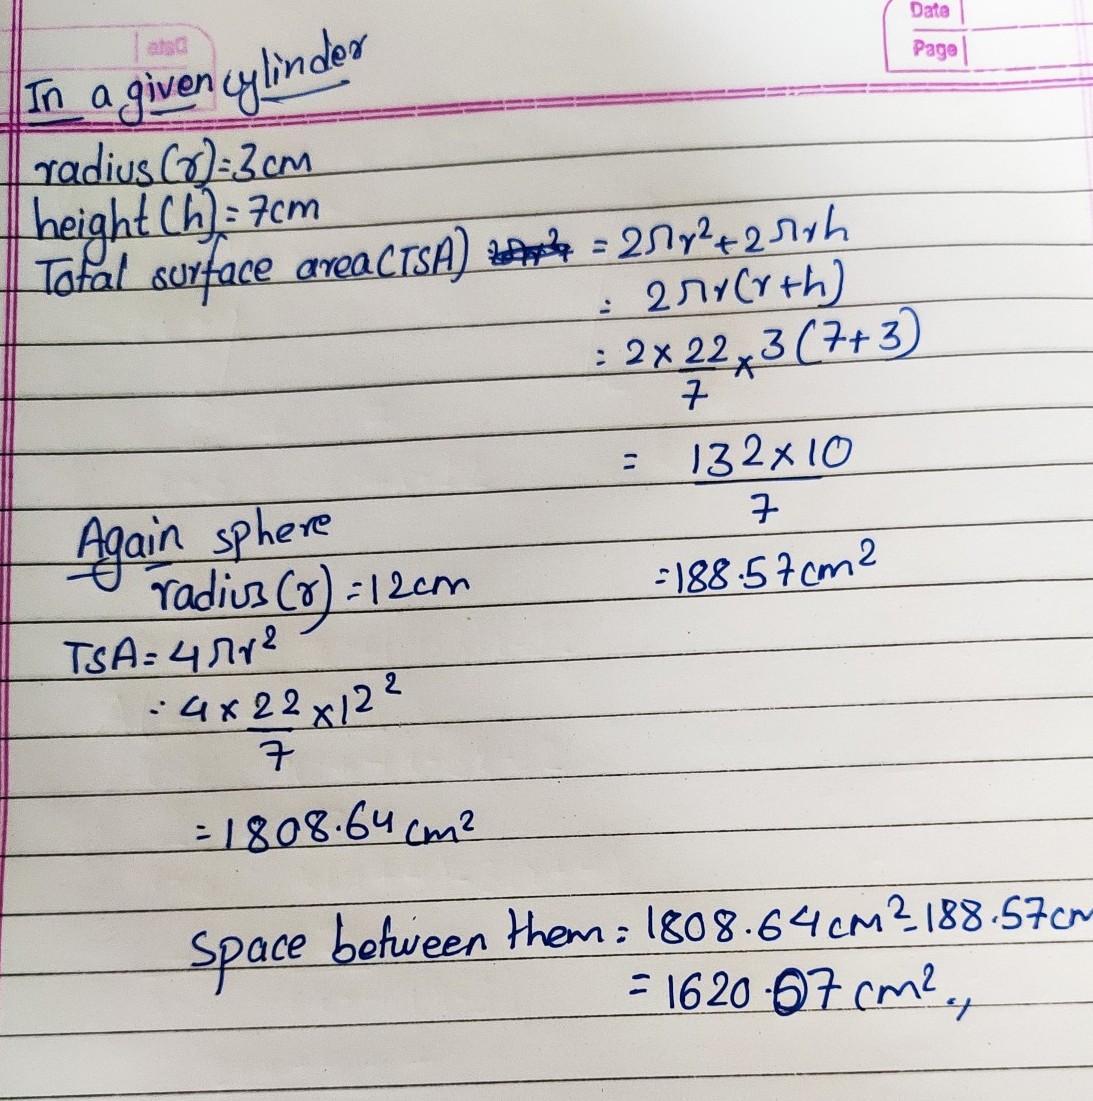 Date
Page
In a given cylinder
radius (r) = 3 cm
height (h) = 7cm
Total surface area (TSA) = 2πr² + 2πrh
= 2πr(r+h)
= 2 × 22/7 × 3 (7+3)
= 132×10/7
= 188.57cm²
Again sphere
radius (r) = 12cm
TSA = 4πr²
= 4 × 22/7 × 12²
= 1808.64 cm²
Space between them = 1808.64 cm² - 188.57cm
= 1620.07 cm².,